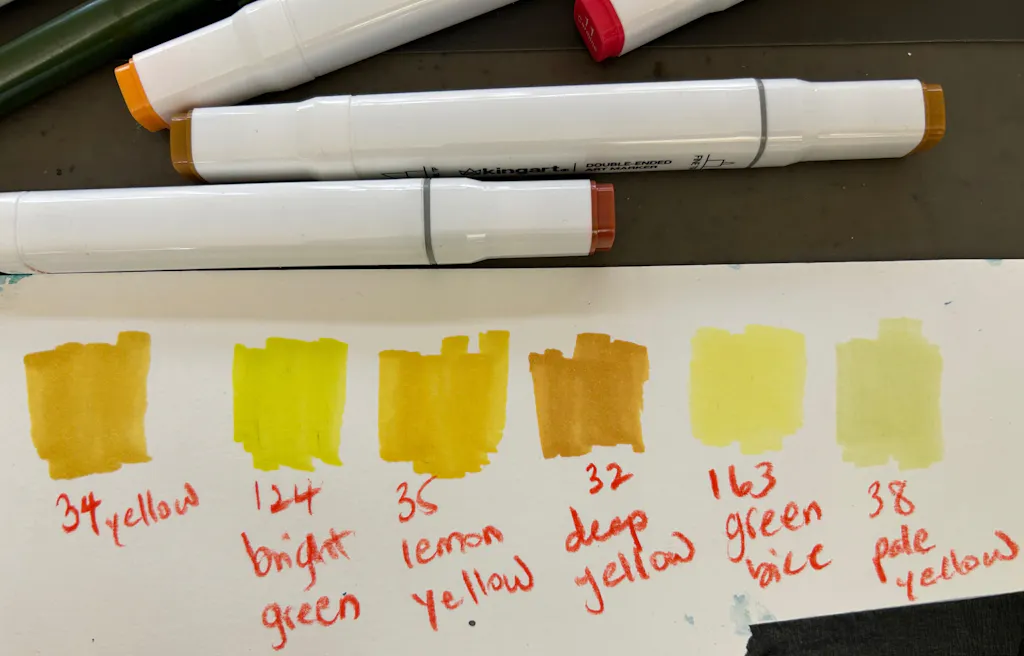 kingart
DOUBLE-ENDED
ART MARKER
34 yellow
124
bright
green
35
lemon
yellow
32
deep
yellow
163
green
bice
38
pale
yellow